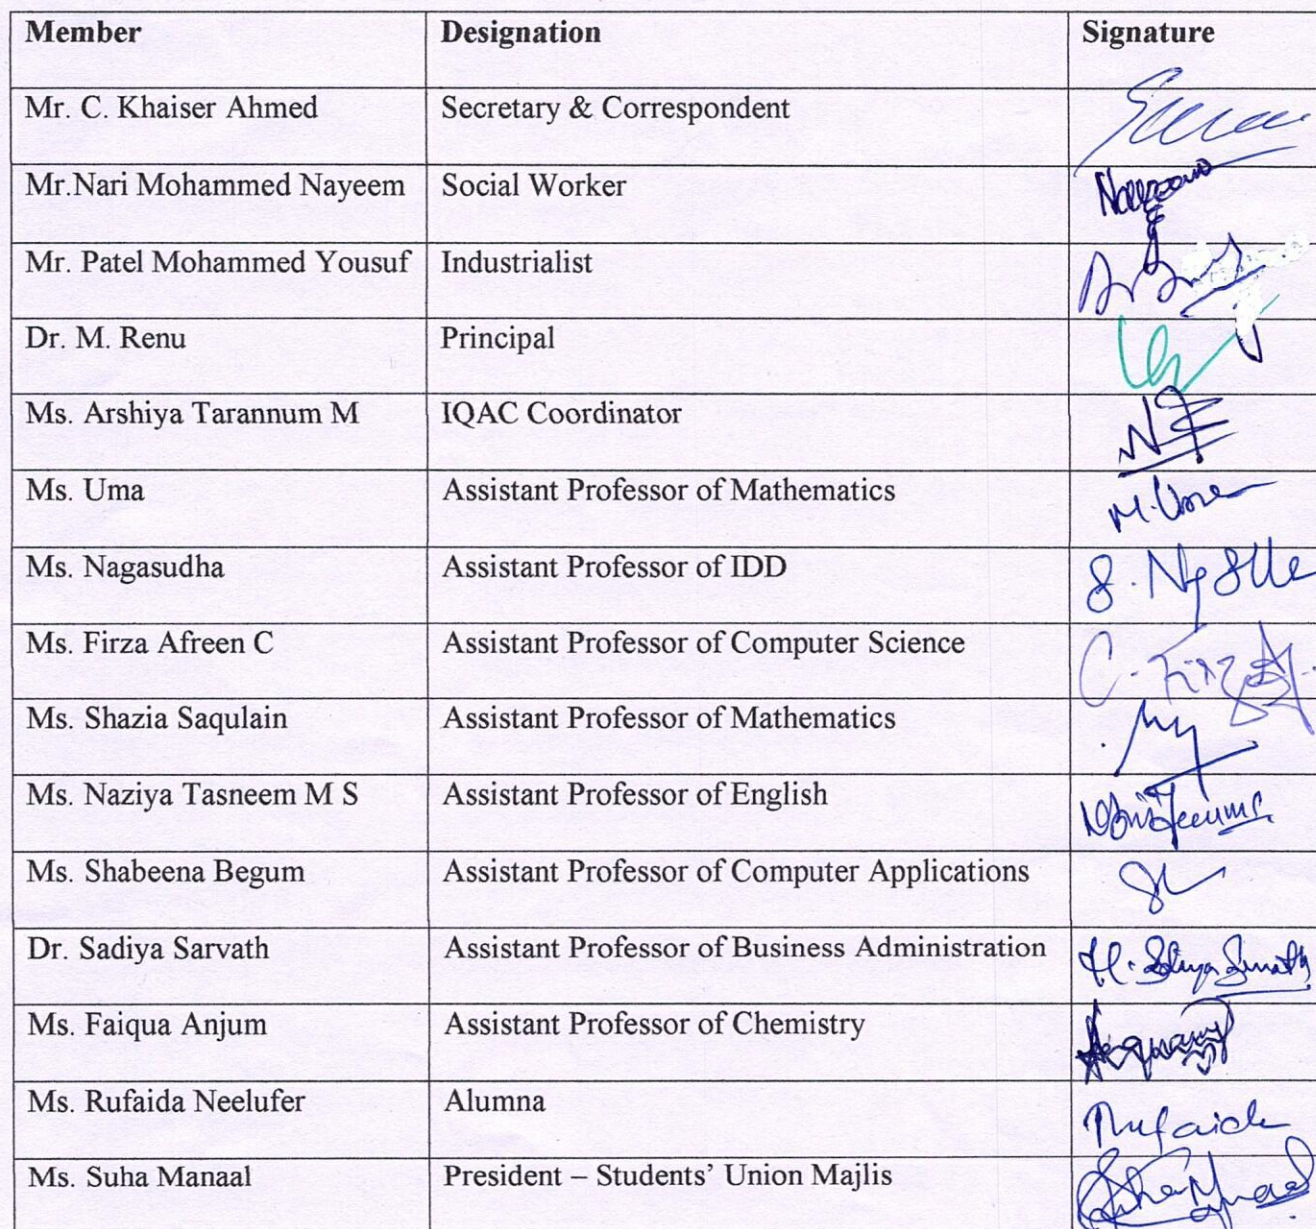 Member Designation Signature
Mr. C. Khaiser Ahmed Secretary & Correspondent
Mr.Nari Mohammed Nayeem Social Worker
Mr. Patel Mohammed Yousuf Industrialist
Dr. M. Renu Principal
Ms. Arshiya Tarannum M IQAC Coordinator
Ms. Uma Assistant Professor of Mathematics M. Uma
Ms. Nagasudha Assistant Professor of IDD
Ms. Firza Afreen C Assistant Professor of Computer Science
Ms. Shazia Saqulain Assistant Professor of Mathematics
Ms. Naziya Tasneem M S Assistant Professor of English
Ms. Shabeena Begum Assistant Professor of Computer Applications
Dr. Sadiya Sarvath Assistant Professor of Business Administration
Ms. Faiqua Anjum Assistant Professor of Chemistry
Ms. Rufaida Neelufer Alumna Rufaida
Ms. Suha Manaal President – Students’ Union Majlis